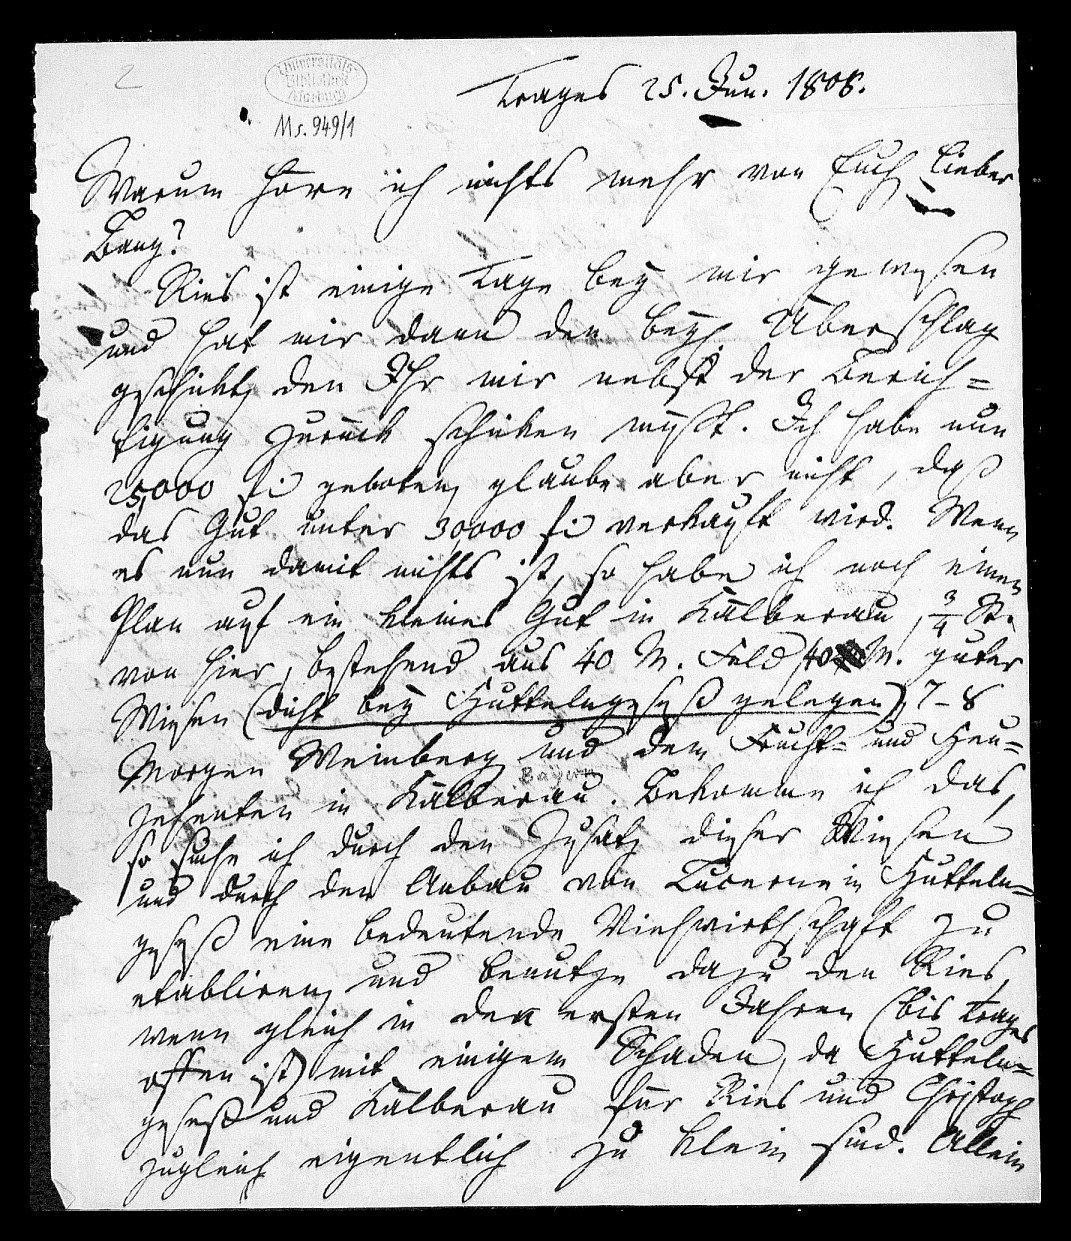 2
Universitäts-
Bibliothek
Marburg
Ms. 949/1
Trages 25. Jun. 1808.
Warum höre ich nichts mehr von Euch lieber
Bang?
Ries ist einige Tage bey mir gewesen
und hat mir dann den beyl. Überschlag
geschickt, den Ihr mir nebst der Berich=
tigung zurück schicken müßt. Ich habe nun
25,000 fl geboten, glaube aber nicht, daß
das Gut unter 30,000 fl verkauft wird. Wenn
es nun damit nichts ist, so habe ich noch einen
Plan auf ein kleines Gut in Kälberau, 3/4 St.
von hier, bestehend aus 40 M. Feld, 40 M. guter
Wiesen (dicht bey Hüttelngeseß gelegen), 7-8
Morgen Weinberg und dem Frucht= und Heu=
Bayern
zehenten in Kälberau. Bekomme ich das,
so suche ich durch den Zusatz dieser Wiesen
und durch den Anbau von Lucerne in Hütteln=
geseß eine bedeutende Viehwirthschaft zu
etabliren, und benutze dazu den Ries,
wenn gleich in den ersten Jahren (bis Trages
offen ist) mit einigem Schaden, da Hütteln=
geseß und Kälberau für Ries und Christoph
zugleich eigentlich zu klein sind. Allein